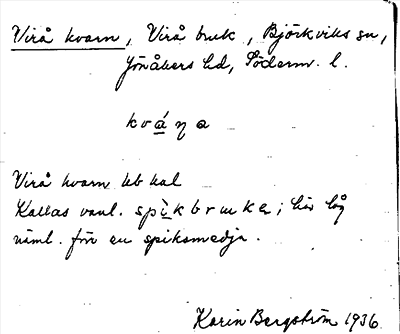 Virå kvarn, Virå bruk, Björkviks sn,
Jönåkers hd, Söderm. l.
kvá̱ŋa
Virå kvarn kal
Kallas vanl. spi̱̍kbruke; här låg
näml. förr en spiksmedja.
Karin Bergström 1936.